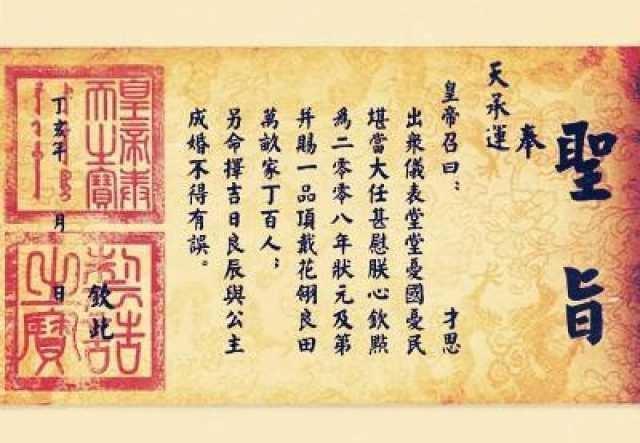 聖旨
奉
天承運
皇帝召曰： 才思
出衆儀表堂堂憂國憂民
堪當大任甚慰朕心欽點
爲二零零八年狀元及第
并賜一品頂戴花翎良田
萬畝家丁百人；
另命擇吉日良辰與公主
成婚不得有誤。
欽此
丁亥年 月 日
皇帝奉
天之寶
制誥
之寶